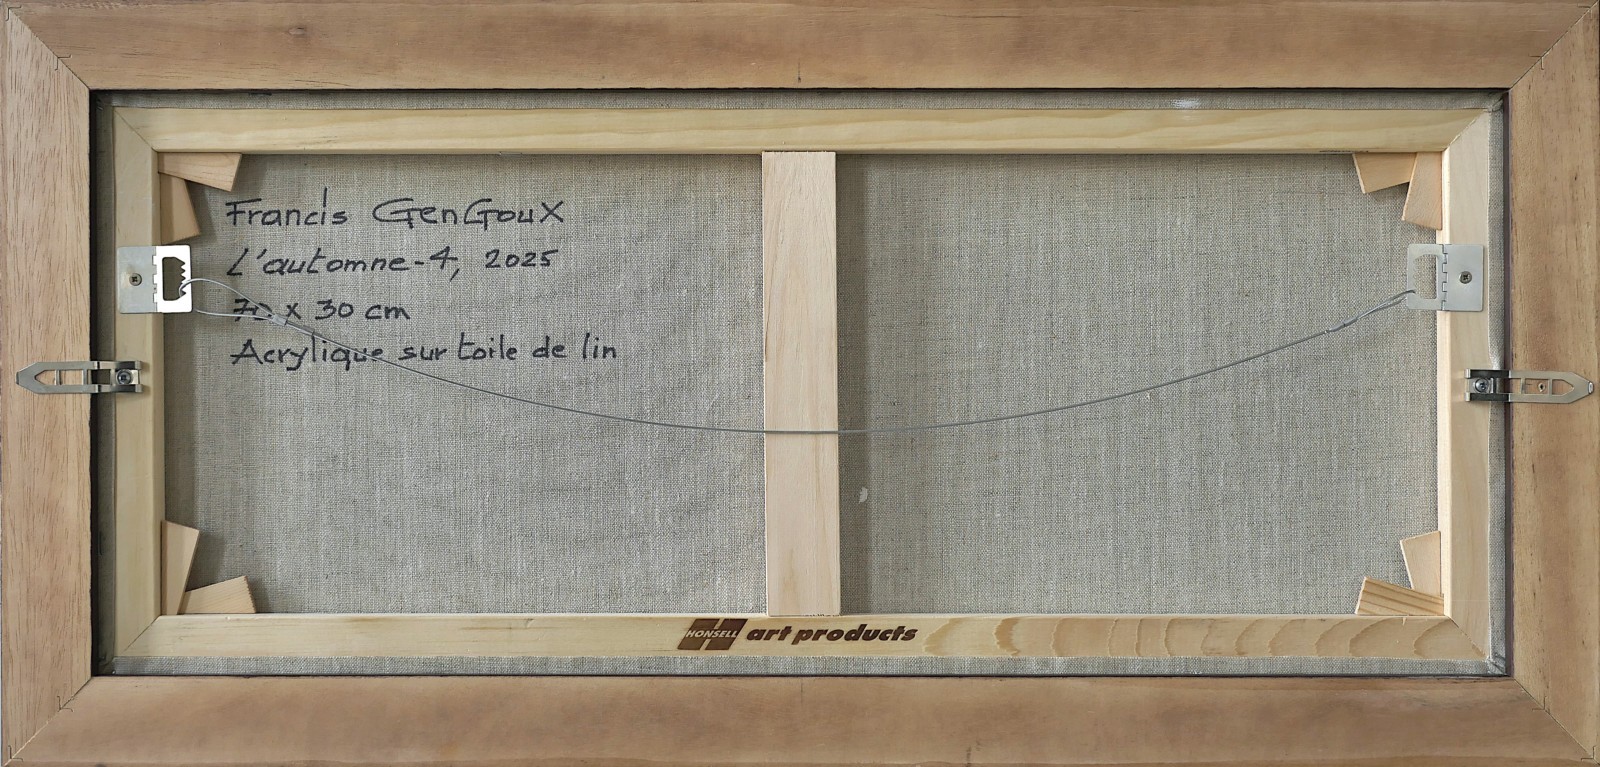 Francis GenGouX
L'automne-4, 2025
70 x 30 cm
Acrylique sur toile de lin
HONSELL art products